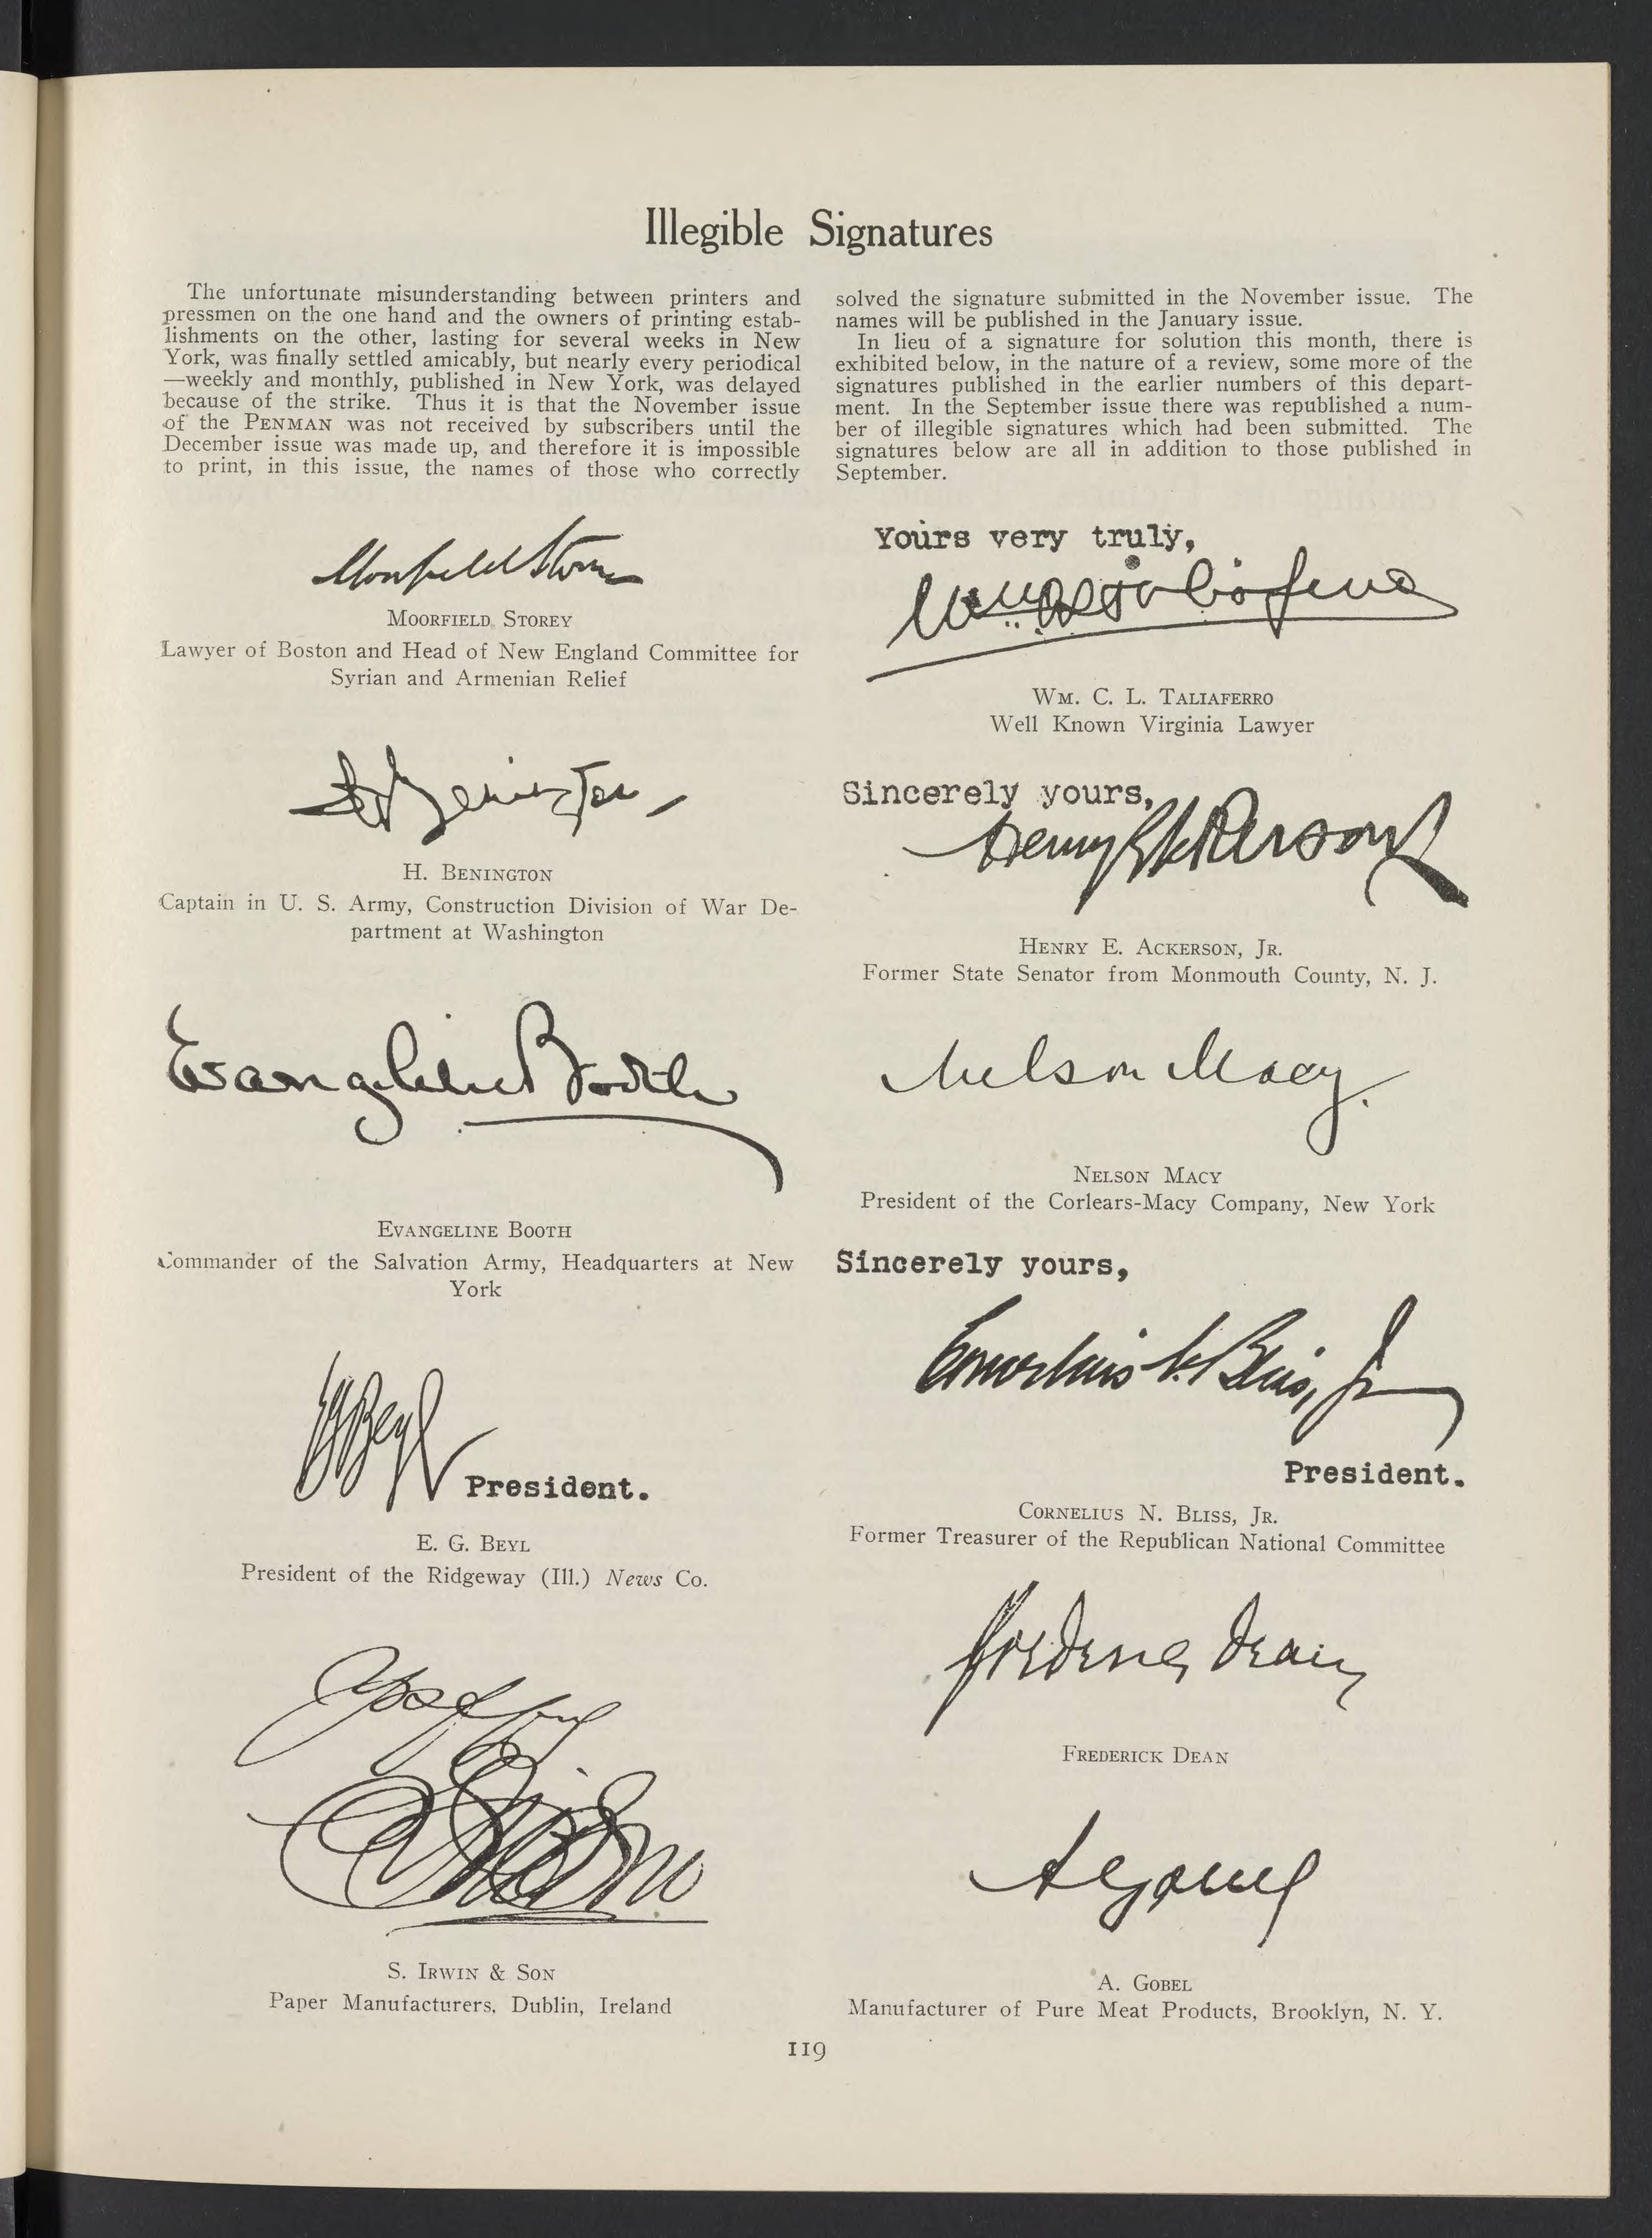 Illegible Signatures
The unfortunate misunderstanding between printers and
pressmen on the one hand and the owners of printing estab-
lishments on the other, lasting for several weeks in New
York, was finally settled amicably, but nearly every periodical
—weekly and monthly, published in New York, was delayed
because of the strike. Thus it is that the November issue
of the PENMAN was not received by subscribers until the
December issue was made up, and therefore it is impossible
to print, in this issue, the names of those who correctly
solved the signature submitted in the November issue. The
names will be published in the January issue.
In lieu of a signature for solution this month, there is
exhibited below, in the nature of a review, some more of the
signatures published in the earlier numbers of this depart-
ment. In the September issue there was republished a num-
ber of illegible signatures which had been submitted. The
signatures below are all in addition to those published in
September.
Moorfield Storey
MOORFIELD STOREY
Lawyer of Boston and Head of New England Committee for
Syrian and Armenian Relief
H Benington
H. BENINGTON
Captain in U. S. Army, Construction Division of War De-
partment at Washington
Evangeline Booth
EVANGELINE BOOTH
Commander of the Salvation Army, Headquarters at New
York
EGBeyl
President.
E. G. BEYL
President of the Ridgeway (Ill.) News Co.
S. IRWIN & SON
Paper Manufacturers, Dublin, Ireland
Yours very truly,
WM. C. L. TALIAFERRO
Well Known Virginia Lawyer
Sincerely yours,
Henry E Ackerson Jr
HENRY E. ACKERSON, JR.
Former State Senator from Monmouth County, N. J.
Nelson Macy.
NELSON MACY
President of the Corlears-Macy Company, New York
Sincerely yours,
Cornelius N. Bliss, Jr
President.
CORNELIUS N. BLISS, JR.
Former Treasurer of the Republican National Committee
Frederick Dean
FREDERICK DEAN
A Gobel
A. GOBEL
Manufacturer of Pure Meat Products, Brooklyn, N. Y.
119